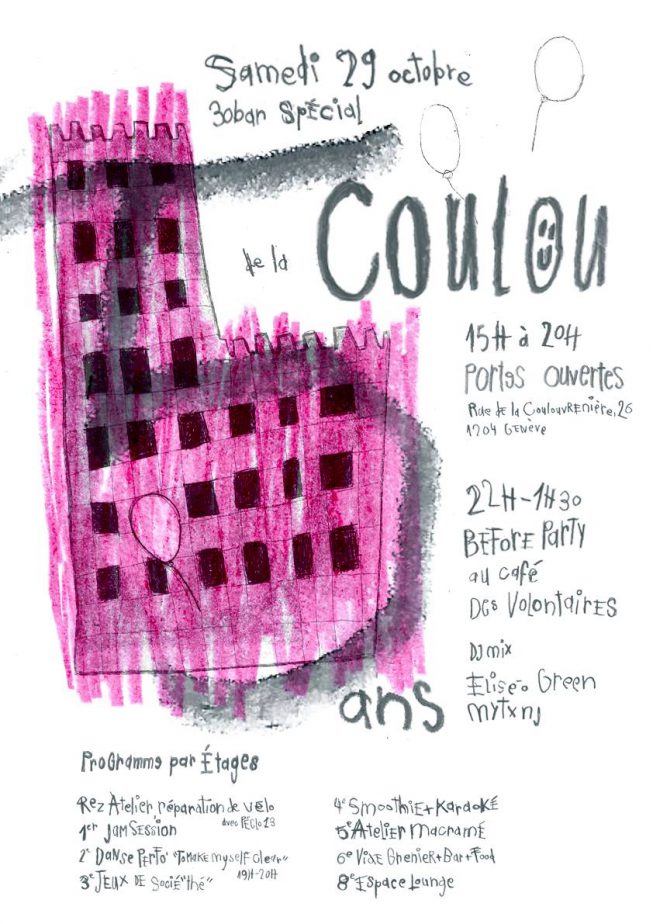 Samedi 29 octobre
30ban Spécial
de la
Coulou
15H à 20H
Portes ouvertes
Rue de la Coulouvrenière, 26
1204 Genève
22H-1H30
Before Party
au café
Des Volontaires
DJ mix
Green
mytxnj
ans
Programme par Étages
Rez Atelier réparation de vélo
avec Péclo 13
1er Jam Session
2e Danse Perfo "To Make myself clear"
19H-20H
3e Jeux de Socié "thé"
4e Smoothie + Karaoké
5e Atelier Macramé
6e Vide Grenier + Bar + Food
8e Espace Lounge